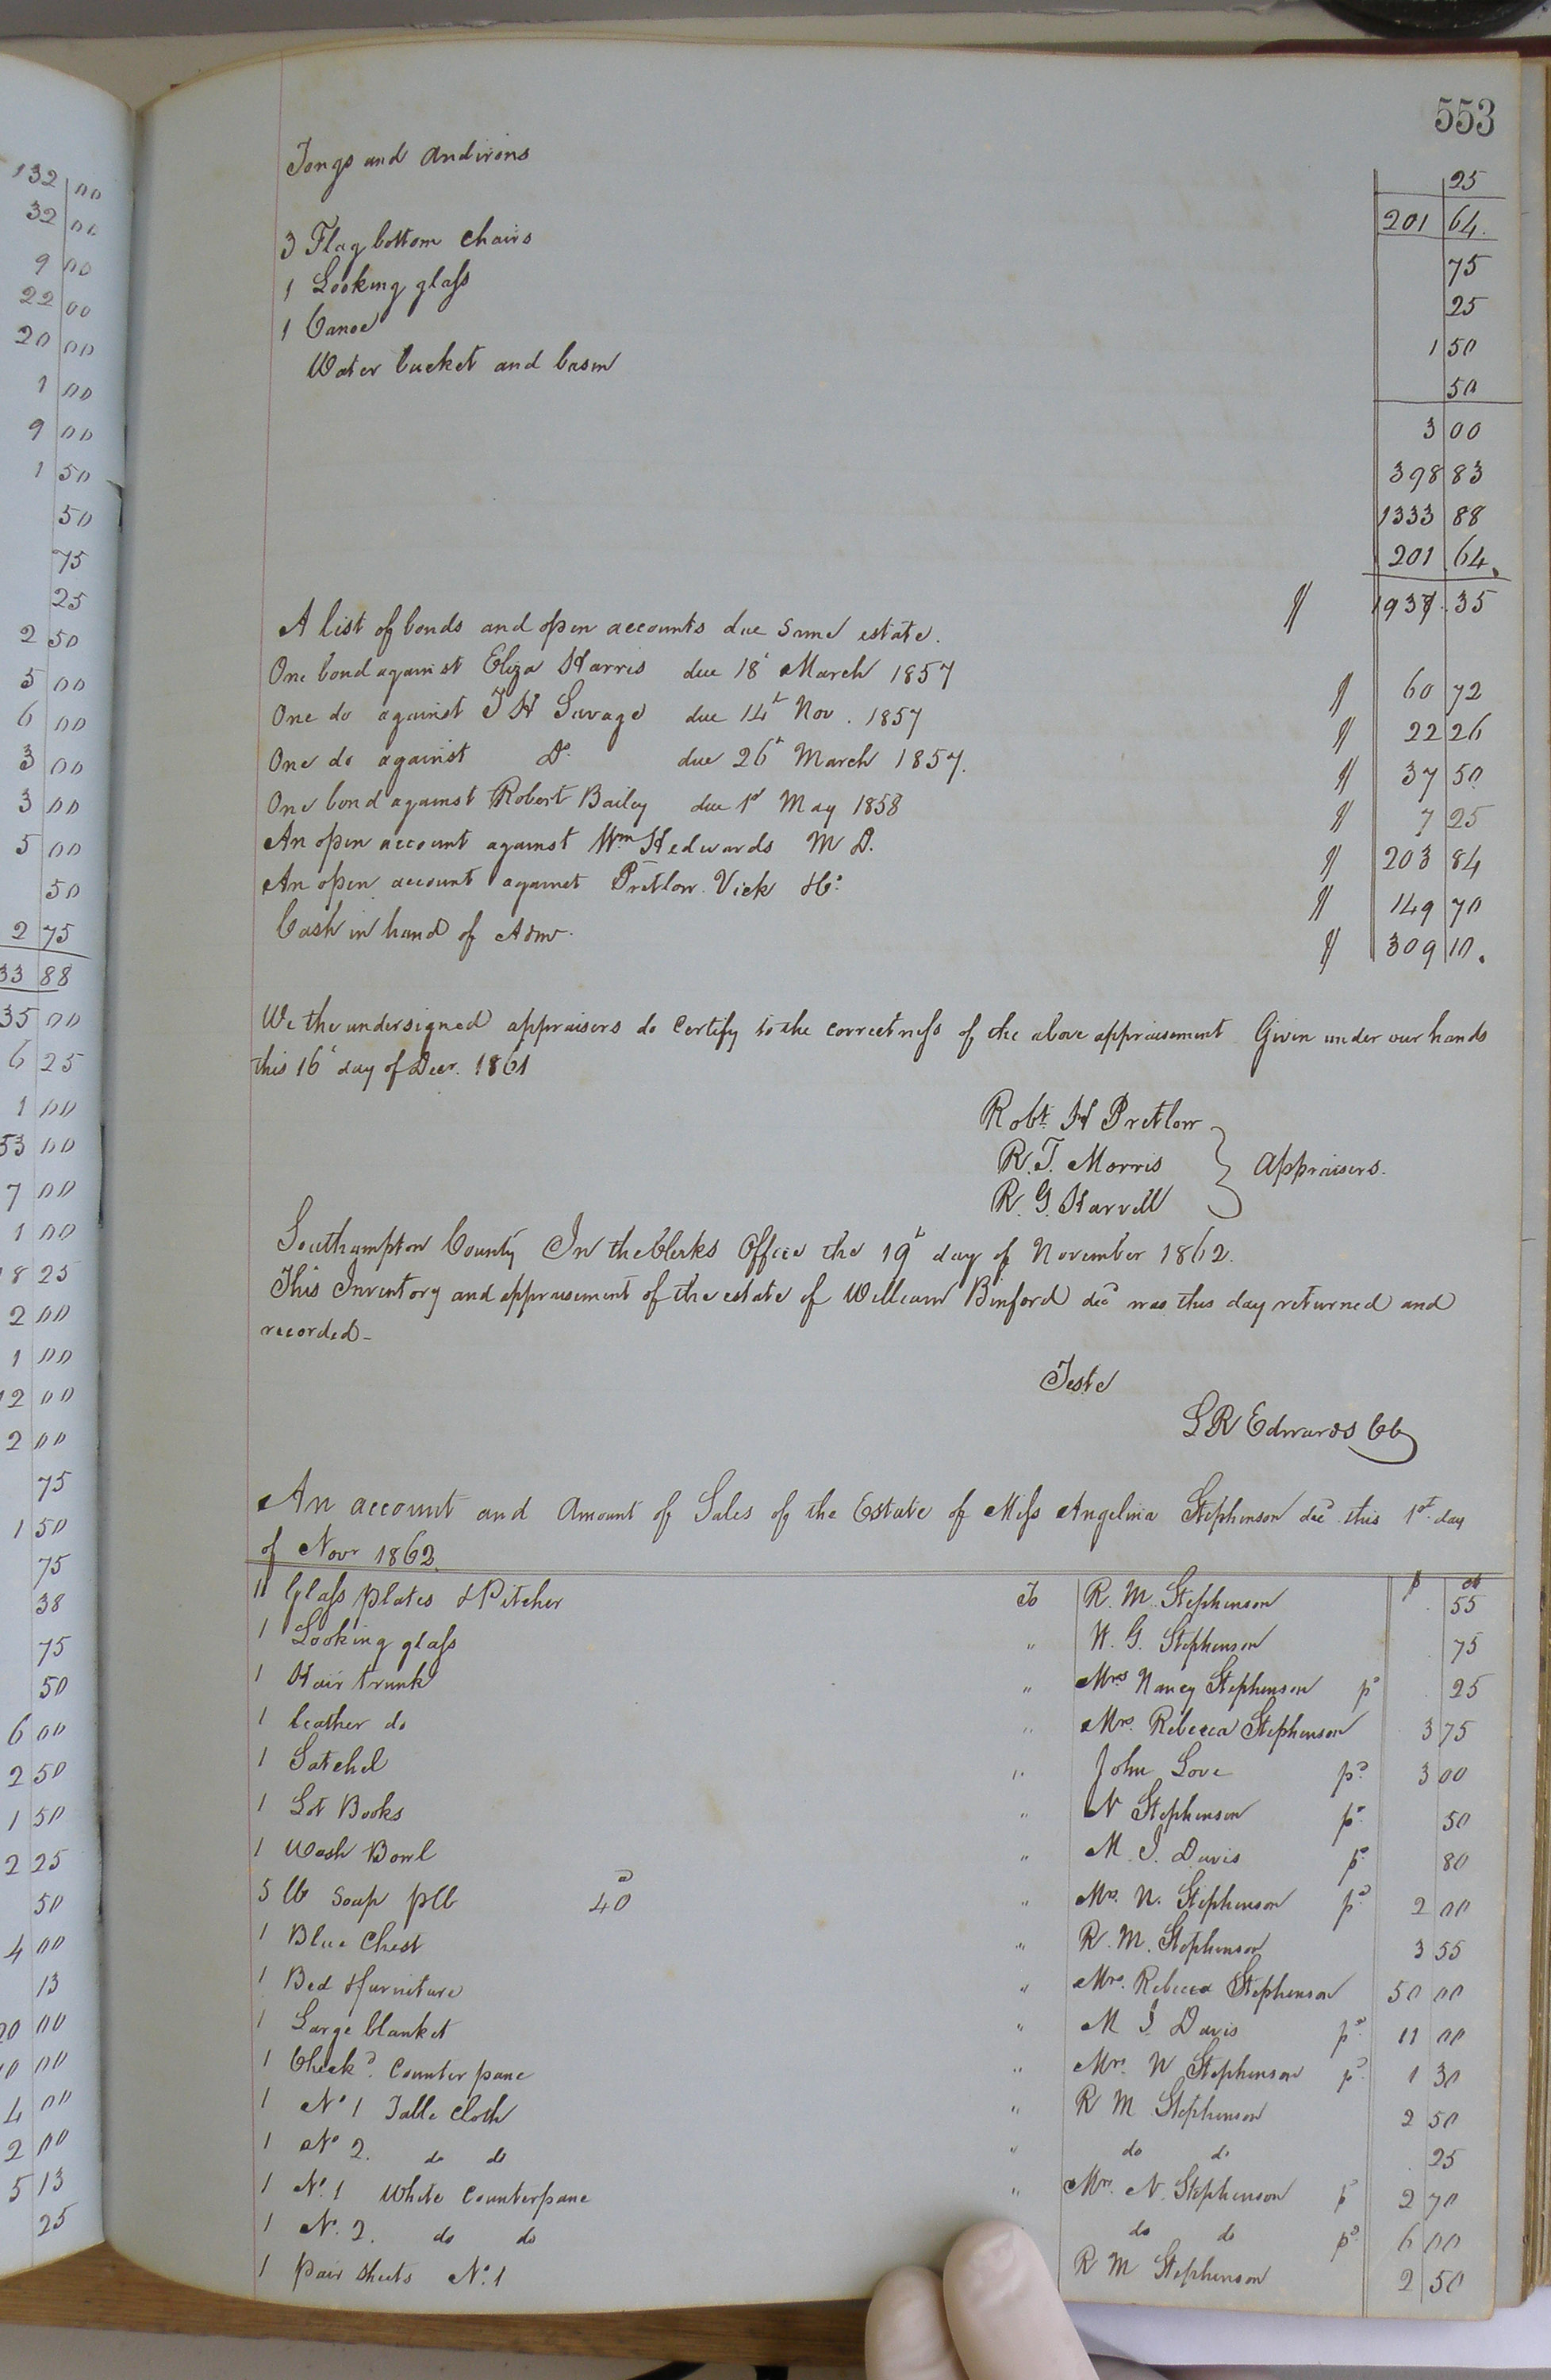 553
Tongs and andirons 25
201 64.
3 Flag bottom chairs 75
1 Looking glass 25
1 Canoe 1 50
Water bucket and basin 50
3 00
398 83
1333 88
201 64.
1937.35
A list of bonds and open accounts due same estate.
One bond against Eliza Harris due 18t March 1857 60 72
One do against T H Savage due 14t Nov. 1857 22 26
One do against Do. due 26t March 1857. 37 50
One bond against Robert Bailey due 1st May 1858 7 25
An open account against Wm H edwards M D. 203 84
An open account against Pretlow Vick &Co: 149 70
Cash in hand of Admr. 309 10.
We the undersigned appraisers do certify to the correctness of the above appraisement Given under our hands
this 16t day of Decr. 1861
Robt. H Pretlow
R. T. Morris Appraisers.
R. G. Harvell
Southampton County In the Clerks Office the 19t day of November 1862.
This Inventory and appraisement of the estate of William Binford decd was this day returned and
recorded-
Teste
L R Edwards CC
An account and Amount of Sales of the Estate of Miss Angelina Stephenson decd this 1st. day
of Novr 1862.
11 Glass plates & Pitcher To R. M. Stephenson 55
1 Looking glass " N. G. Stephenson 75
1 Hair trunk " Mrs Nancy Stephenson pd 25
1 leather do " Mrs. Rebecca Stephenson 3 75
1 Satchel " John Love pd. 3 00
1 Lot Books " N Stephenson pd. 50
1 Wash Bowl " M. J. Davis pd. 80
5 lb Soap plb 40 " Mrs. N. Stephenson pd. 2 00
1 Blue Chest " R. M. Stephenson 3 55
1 Bed &furniture " Mrs. Rebecca Stephenson 50 00
1 Large blanket " M J. Davis pd. 11 00
1 Checkd. Counterpane " Mrs. N Stephenson pd. 1 30
1 No 1 Table Cloth " R M Stephenson 2 50
1 No 2. do do " do do 25
1 No. 1 White Counterpane " Mrs. N. Stephenson pd 2 70
1 No. 2. do do do do pd. 6 00
1 pair sheets No. 1 R M Stephenson 2 50
132 00
32 00
9 00
22 00
20 00
1 00
9 00
1 50
50
75
25
2 50
5 00
6 00
3 00
3 00
5 00
50
2 75
33 88
35 00
6 25
1 00
53 00
7 00
1 00
8 25
2 00
1 00
12 00
2 00
75
1 50
75
38
75
50
6 00
2 50
1 50
2 25
50
4 00
13
00
00
4 00
2 00
5 13
25